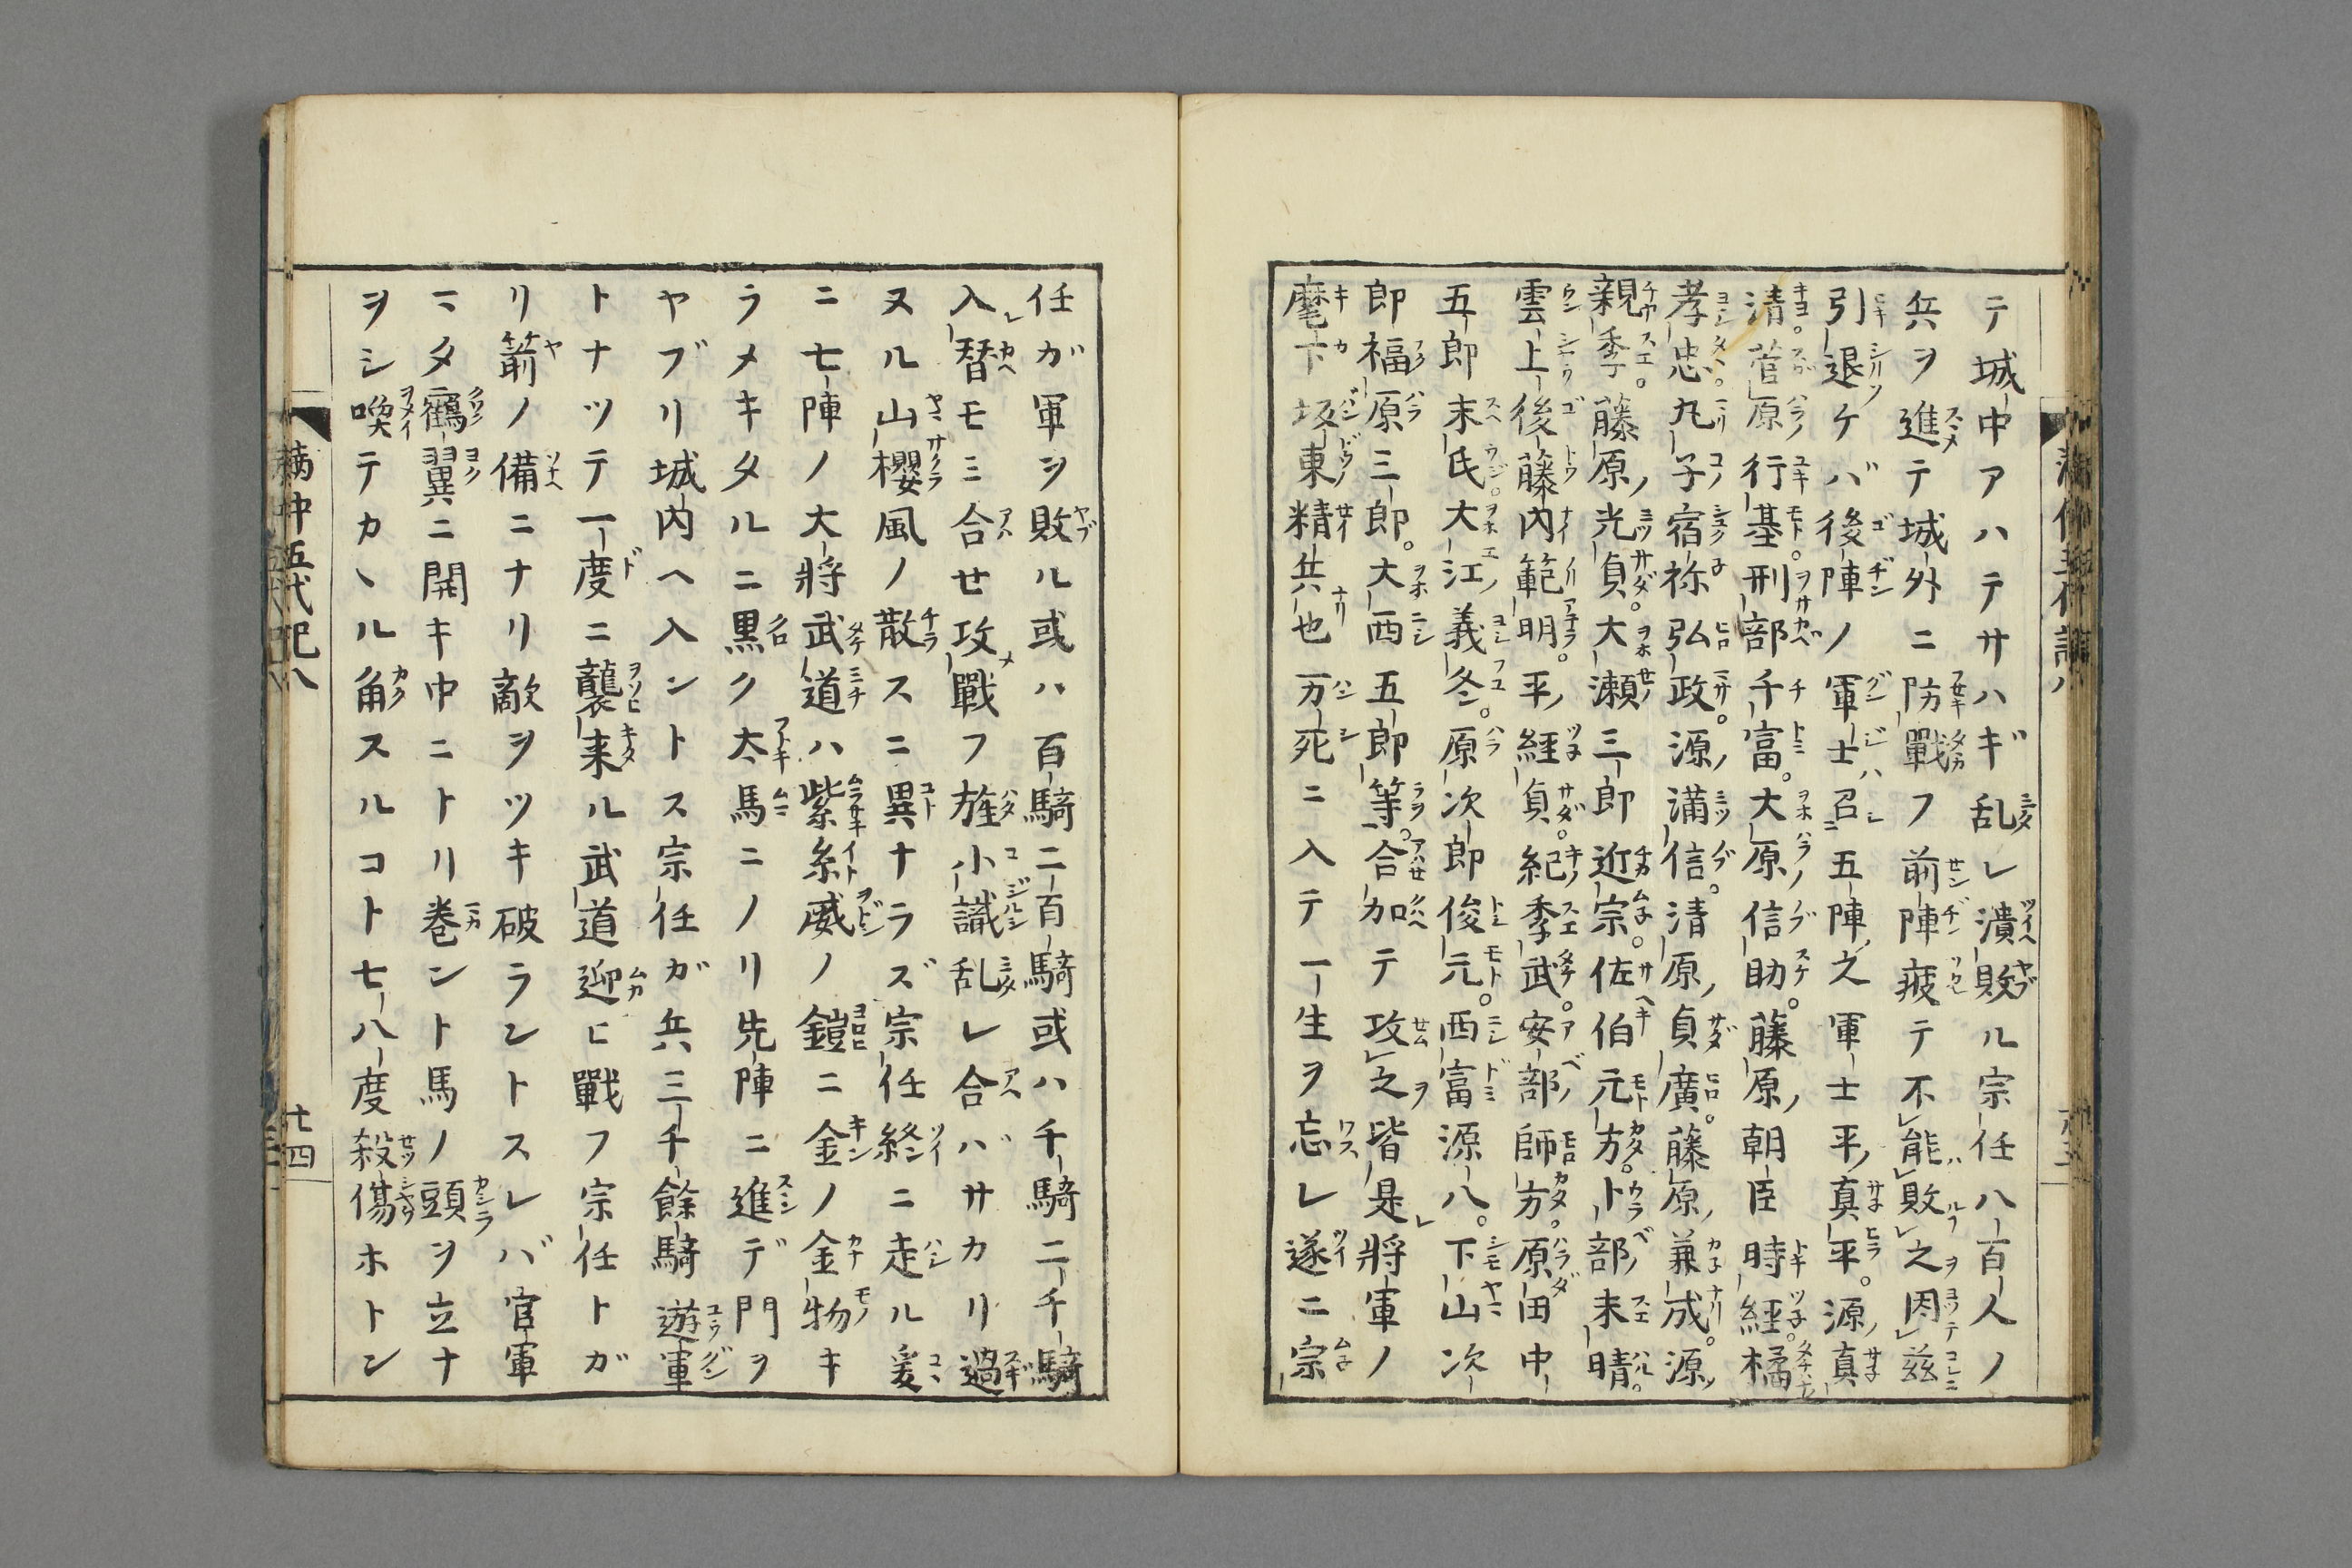 テ城中アハテサハギ乱レ潰敗ル宗任八百人ノ
兵ヲ進テ城外ニ防戰フ前陣疲テ不能敗之因茲
引退ケバ後陣ノ軍士召五陣之軍士平真平。源真
清。菅原行基。刑部千富。大原信助。藤原朝臣時経。橘
孝忠。丸子宿祢弘政。源満信。清原貞廣。藤原兼成。源
親季。藤原光貞。大瀬三郎近宗。佐伯元方。卜部末晴。
雲上後藤内範明。平経貞。紀季武。安部師方。原田中
五郎末氏。大江義冬。原次郎俊元。西富源八。下山次
郎福原三郎。大西五郎等。合加テ攻之皆是將軍ノ
麾下坂東精兵也万死ニ入テ一生ヲ忘レ遂ニ宗
任ガ軍ヲ敗ル或ハ百騎二百騎或ハ千騎二千騎
入替モミ合せ攻戰フ旌小識乱レ合バサカリ過
ヌル山櫻風ノ散スニ異ナラズ宗任終ニ走ル爰
ニ七陣ノ大將武道ハ紫糸威ノ鎧ニ金ノ金物キ
ラメキタルニ黒ク太馬ニノリ先陣ニ進デ門ヲ
ヤブリ城内ヘ入ントス宗任ガ兵三千餘騎遊軍
トナツテ一度ニ襲来ル武道迎ヒ戰フ宗任トガ
リ箭ノ備ニナリ敵ヲツキ破ラントスレバ官軍
マタ鶴翼ニ開キ中ニトリ巻ント馬ノ頭ヲ立ナ
ヲシ喚テカヽル角スルコト七八度殺傷ホトン
満仲五代記八
廿四